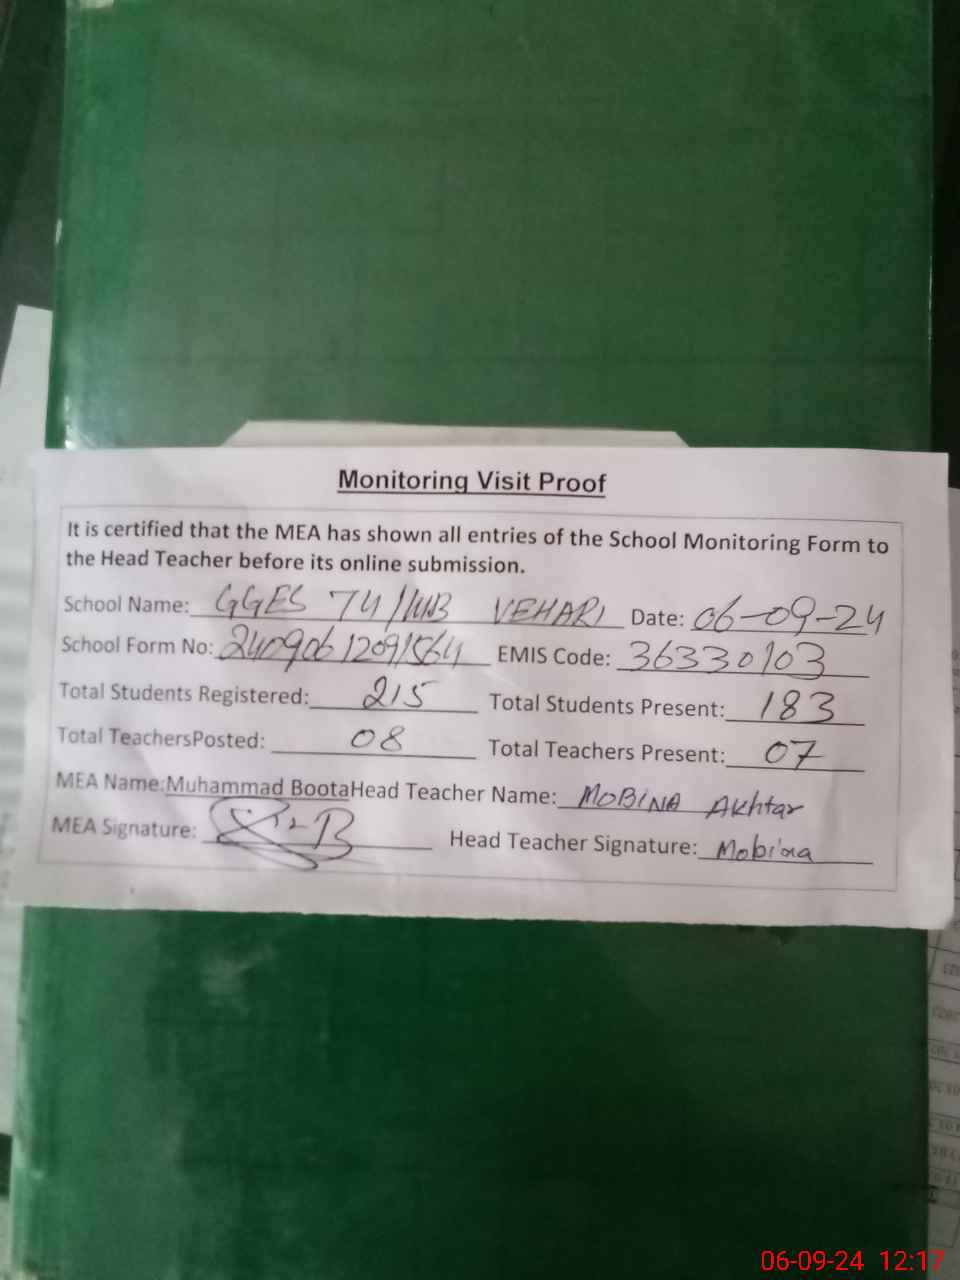 Monitoring Visit Proof
It is certified that the MEA has shown all entries of the School Monitoring Form to
the Head Teacher before its online submission.
School Name: GGES 74/WB VEHARI Date: 06-09-24
School Form No: 24090612091564 EMIS Code: 36330103
Total Students Registered: 215 Total Students Present: 183
Total TeachersPosted: 08 Total Teachers Present: 07
MEA Name:Muhammad BootaHead Teacher Name: MOBINA Akhtar
MEA Signature: Head Teacher Signature: Mobina
06-09-24 12:17